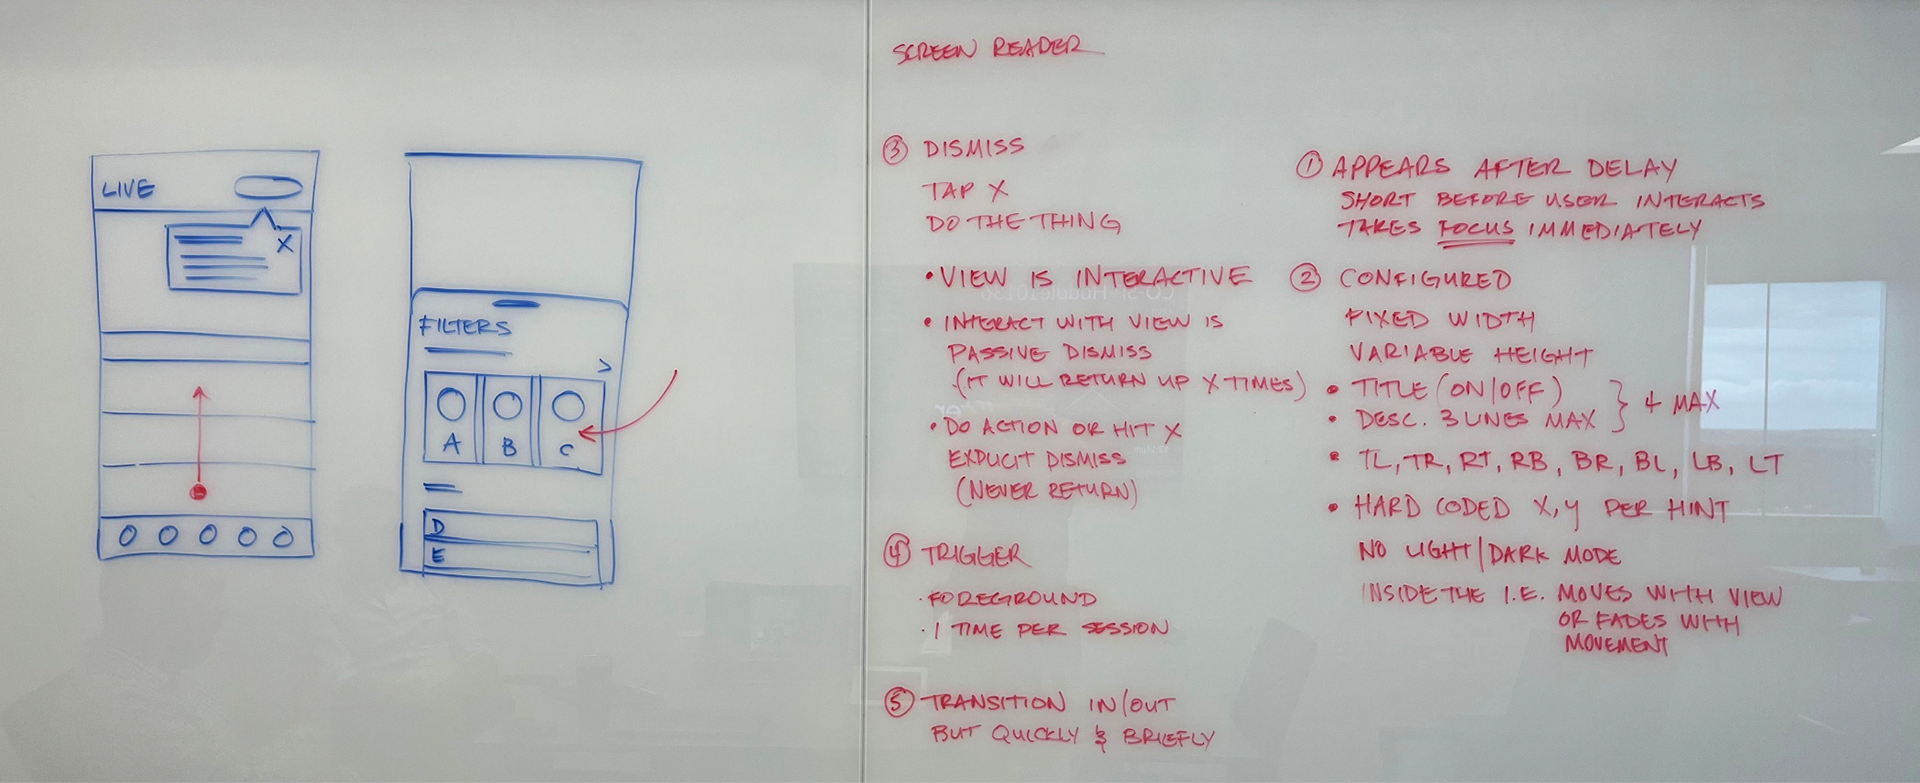 LIVE
X
FILTERS
>
A B C
D
E
SCREEN READER
③ DISMISS
TAP X
DO THE THING
• VIEW IS INTERACTIVE
• INTERACT WITH VIEW IS
PASSIVE DISMISS
(IT WILL RETURN UP X TIMES)
• DO ACTION OR HIT X
EXPLICIT DISMISS
(NEVER RETURN)
④ TRIGGER
· FOREGROUND
· 1 TIME PER SESSION
⑤ TRANSITION IN/OUT
BUT QUICKLY & BRIEFLY
① APPEARS AFTER DELAY
SHORT BEFORE USER INTERACTS
TAKES FOCUS IMMEDIATELY
② CONFIGURED
FIXED WIDTH
VARIABLE HEIGHT
• TITLE (ON/OFF)
• DESC. 3 LINES MAX } 4 MAX
• TL, TR, RT, RB, BR, BL, LB, LT
• HARD CODED X, Y PER HINT
NO LIGHT/DARK MODE
INSIDE THE I.E. MOVES WITH VIEW
OR FADES WITH
MOVEMENT